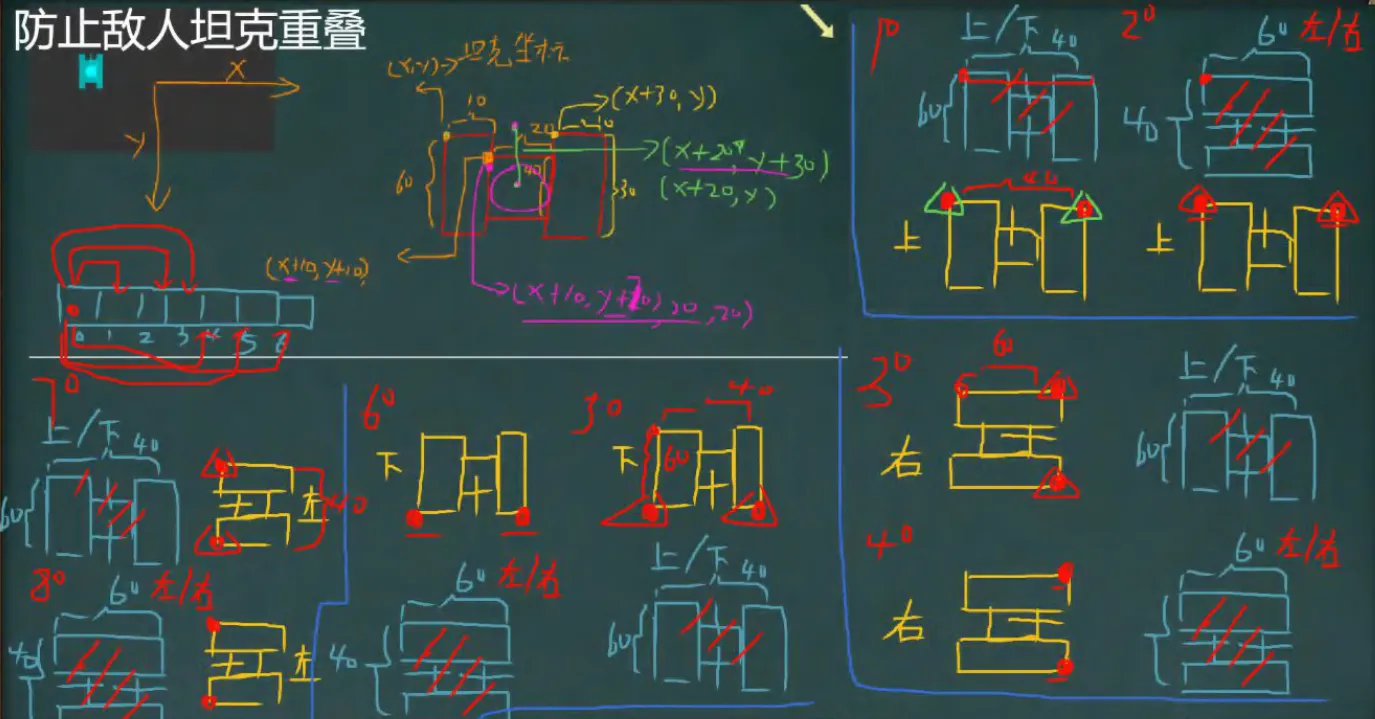 防止敌人坦克重叠
X
Y
(x,y)→坦克坐标
10
(x+30,y)
20
10
60
40
30
(x+20,y+30)
(x+20,y)
(x+10,y+10)
(x+10,y+10),20,20)
0 1 2 3 4 5 6
1°
上/下 40
60
2°
60 左/右
40
上
40
上
3°
60
右
上/下 40
60
4°
右
60 左/右
40
上/下 40
60
左 40
6°
下
60 左/右
40
下
40
60
上/下 40
60
8°
60 左/右
40
左